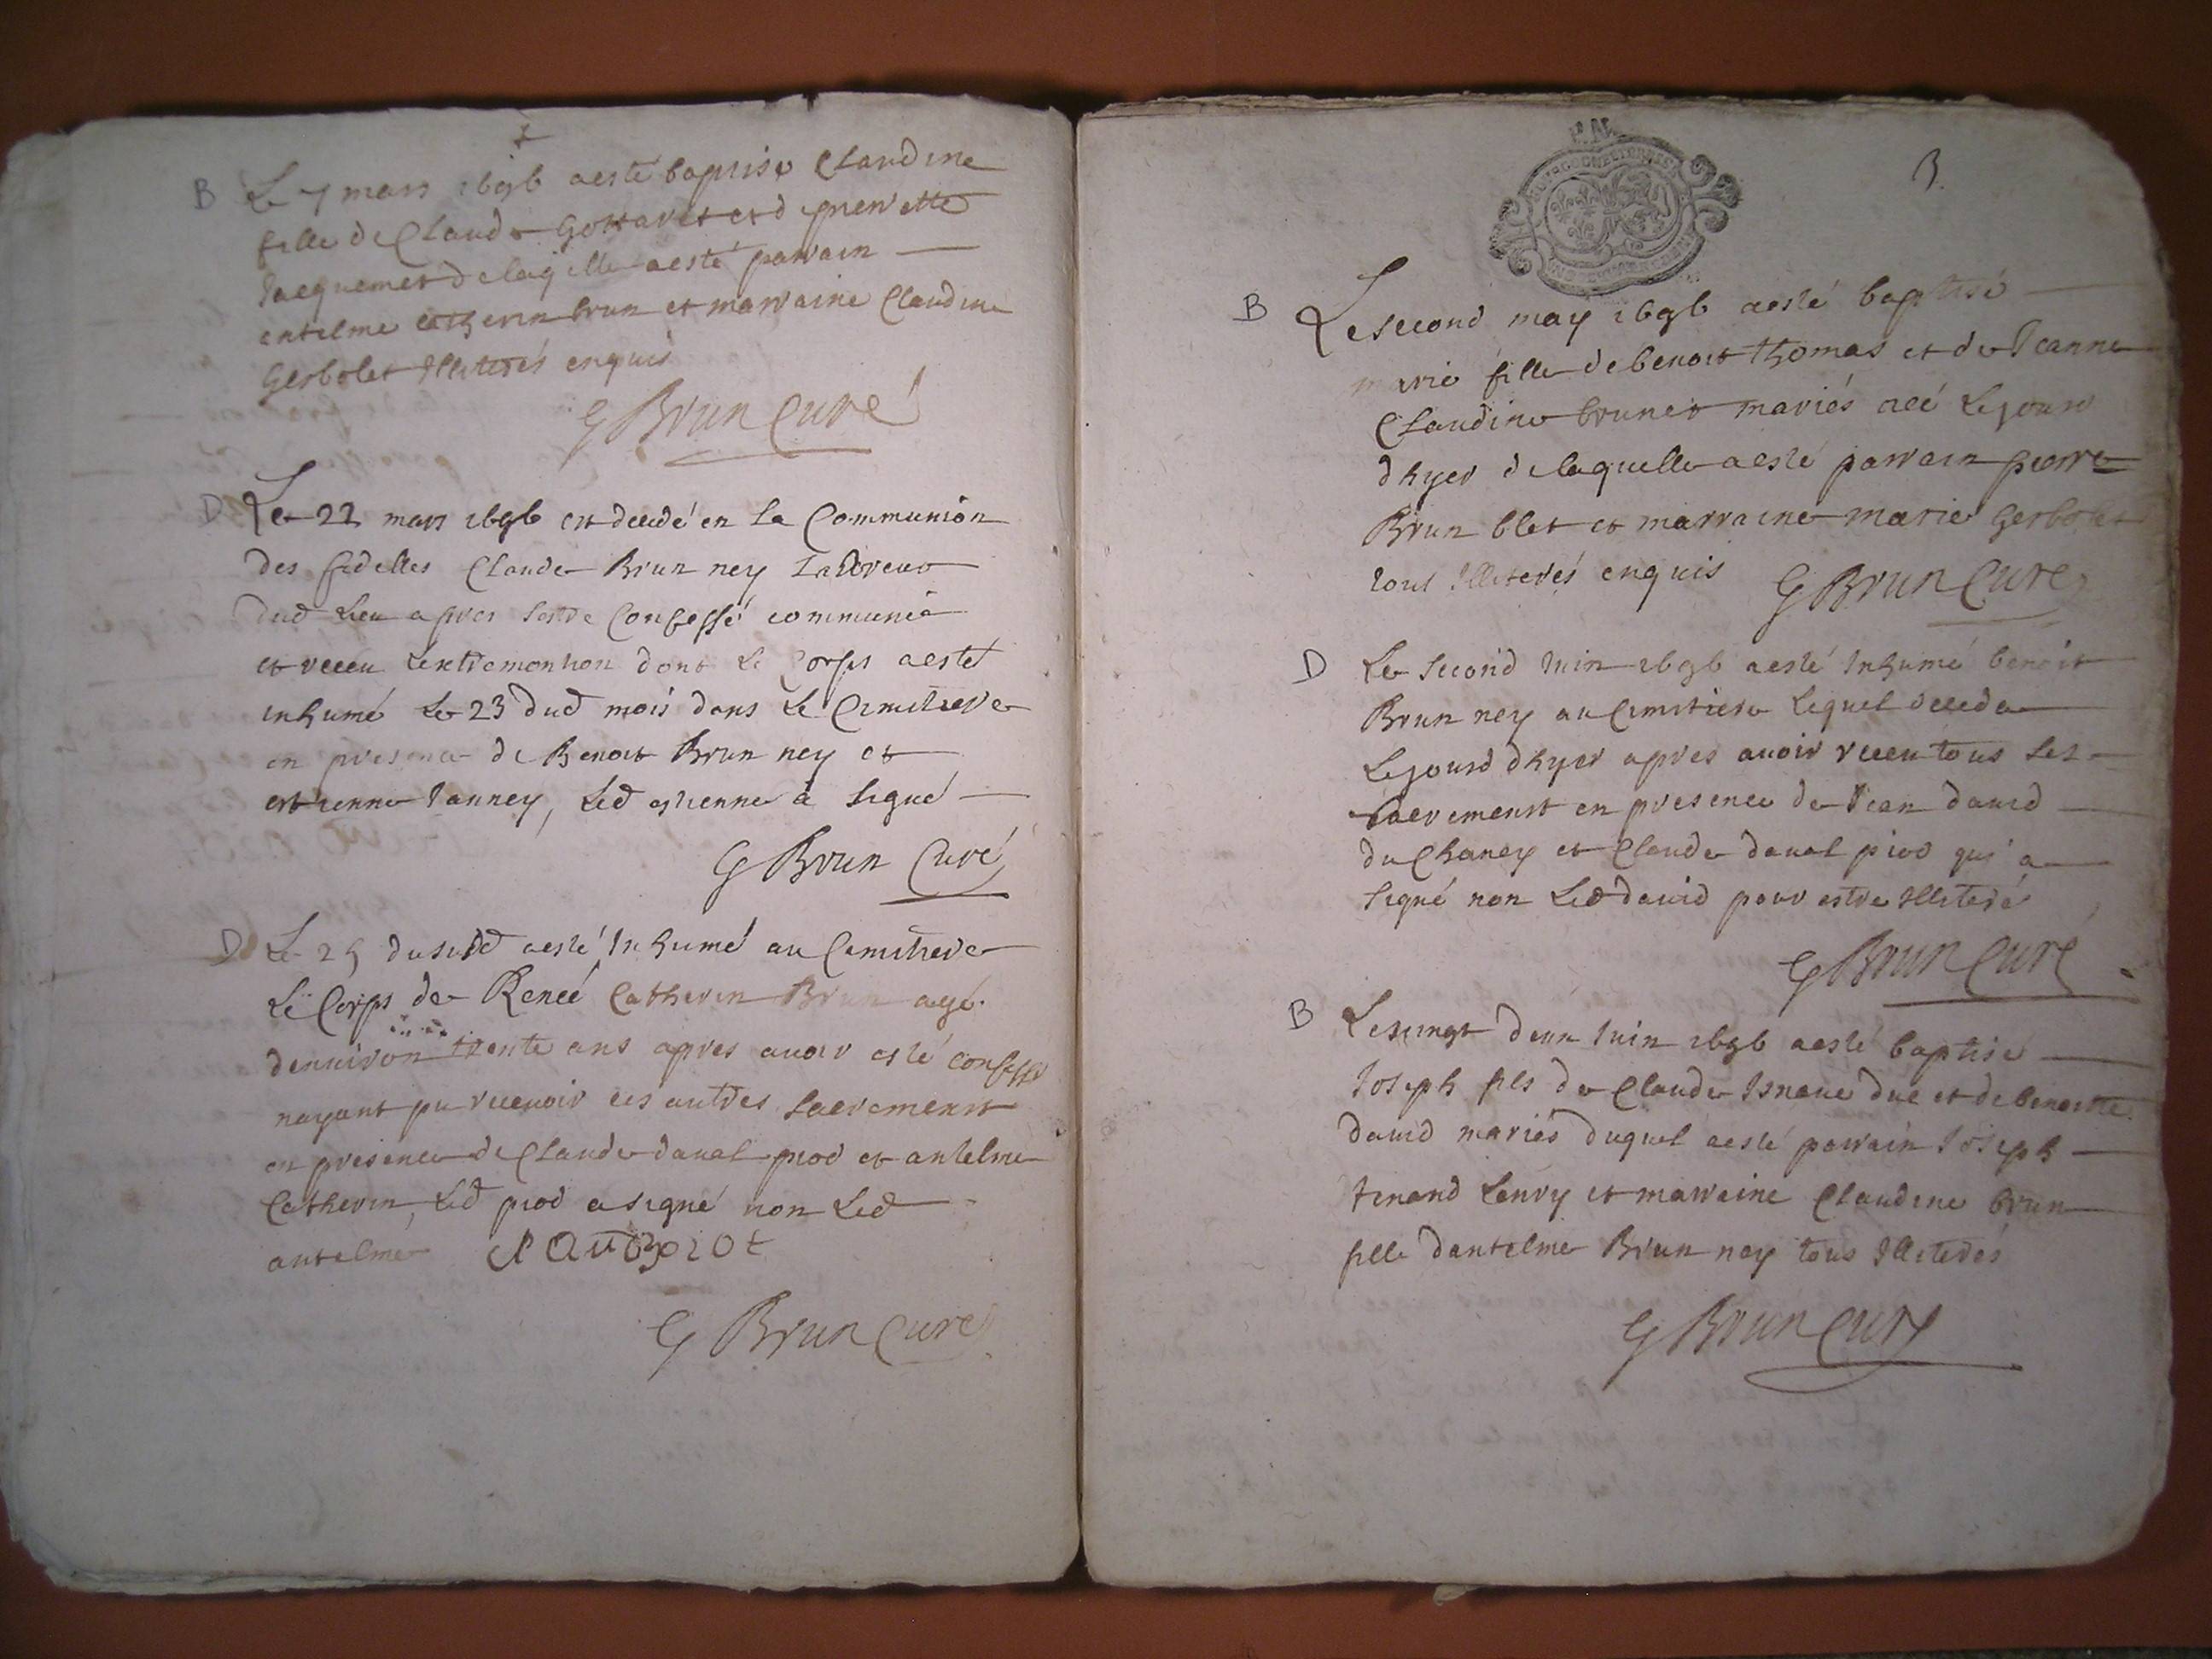 B Le 7 mars 1696 a esté baptisé Claudine
fille de Claude Gottaret et d
Jacquemet de laqlle a esté parrain
antelme catherin brun et marraine Claudine
Gerbolet Illiterés enquis
G Brun Curé
D Le 22 mars 1696 est decedé en la Communion
des fidelles Claude Brun ney Laboreur
dud Lieu apres sestre Confessé communié
et receu Lextremontion dont Le Corps a esté
inhumé Le 23 dud mois dans Le Cimitiere
en presence de Benoit Brun ney et
estienne Janney, Led estienne à signé
G Brun Curé
D Le 25 dusud a esté Inhumé au Cemitiere
Le Corps de Reneé Catherin Brun agé
denuiron trente ans apres auoir esté confessé
nayant pu receuoir les autres sacrements
en presence de Claude daual piod et antelme
Catherin, Led piod a signé non Led
antelme
G Brun Curé
3.
B Le second may 1696 a esté baptisé
marie fille de benoit thomas et de Jeanne
Claudine brunet mariés neé Le jour
dhyer de laquelle a esté parrain pierre
Brun blet et marraine marie Gerbolet
tous Illiterés enquis G Brun Curé
D Le second Juin 1696 a esté Inhumé benoit
Brun ney au Cimitiere Lequel deceda
Le jourd dhyer apres auoir receu tous les
sacrements en presence de Jean dauid
du Chaney et Claude daual piod qui a
signé non Led dauid pour estre Illiteré
G Brun Curé
B Le vingt deux Juin 1696 a esté baptisé
Joseph fils de Claude duc et de benoitte
dauid mariés duquel a esté parrain Joseph
et marraine Claudine brun
fille dantelme Brun ney tous Illiterés
G Brun Curé